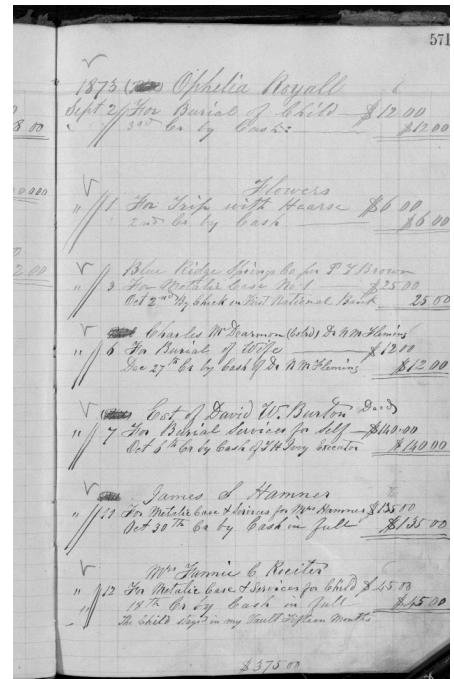 571
1873 Ophelia Royall
Sept 2 For Burial of Child $12.00
3rd Cr by Cash $12.00
Flowers
" 1 For Trip with Hearse $6 00
2nd Cr by Cash $6 00
8 00
0 000
2 00
Blue Ridge Springs Co per P F Brown
" 3 For Metalic Case No 1 $25.00
Oct 2nd By Check on First National Bank 25 00
Charles McDearmon (Cold) Dr N M Fleming
" 6 For Burial of Wife $12 00
Dec 27th Cr by Cash of Dr N M Fleming $12.00
Est of David W. Burton Decd
" 7 For Burial Services for self $140.00
Oct 6th Cr by Cash of Ivey Executor $140.00
James S Hamner
" 10 For Metalic Case & Services for Mrs Hamner $135 00
Oct 30th Cr by Cash in full $135 00
Mrs Fannie C
" 12 For Metalic Case & Services for Child $45.00
" 18th Cr by Cash in full $45 00
The Child in my Vault Fifteen Months
$375.00